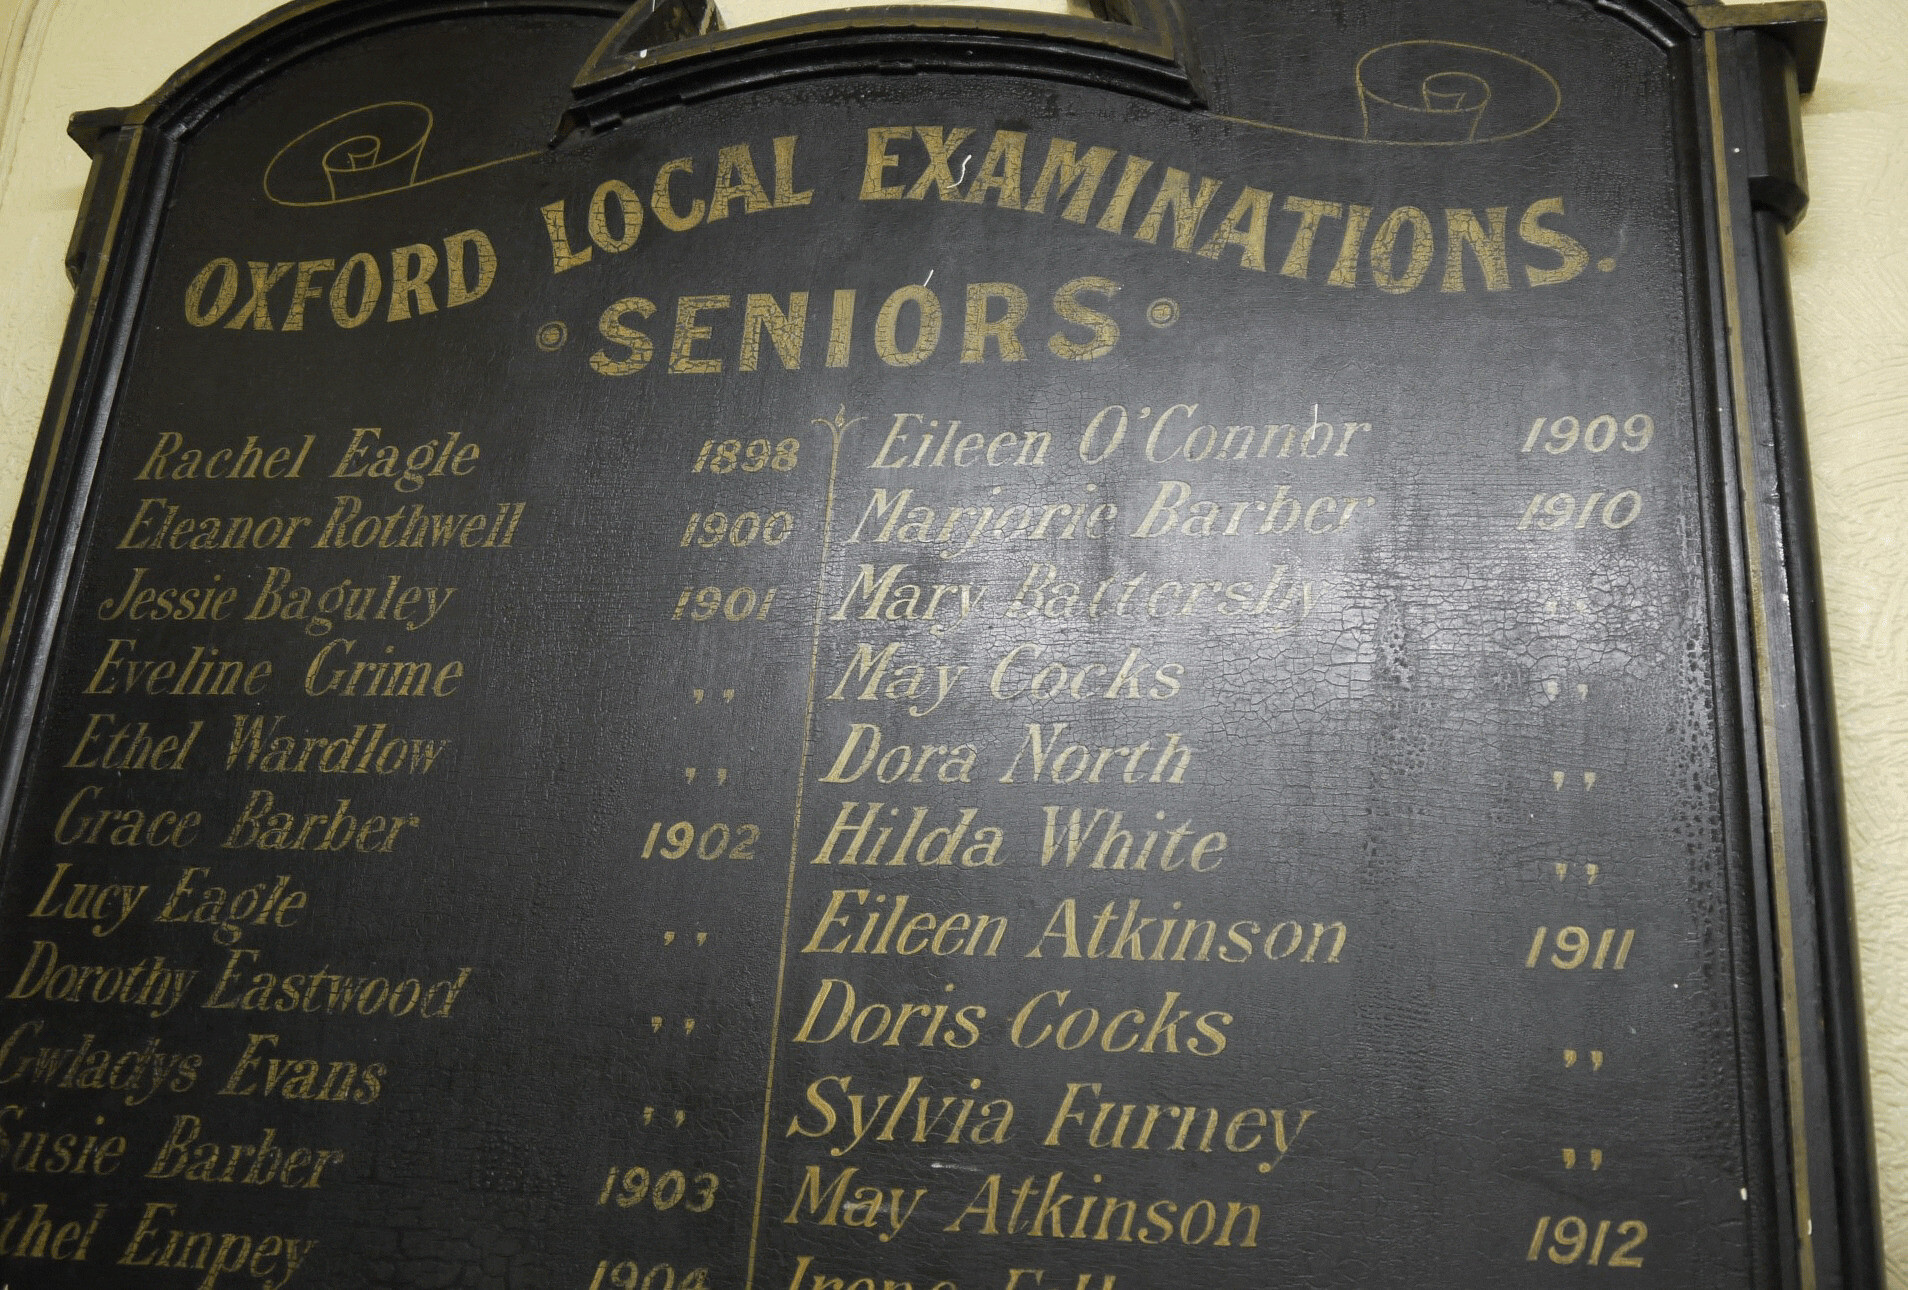 OXFORD LOCAL EXAMINATIONS.
SENIORS
Rachel Eagle 1898
Eleanor Rothwell 1900
Jessie Baguley 1901
Eveline Grime ,,
Ethel Wardlow ,,
Grace Barber 1902
Lucy Eagle ,,
Dorothy Eastwood ,,
Gwladys Evans ,,
Susie Barber 1903
thel Empey 1904
Eileen O'Connor 1909
Marjorie Barber 1910
Mary Battersby ,,
May Cocks ,,
Dora North ,,
Hilda White ,,
Eileen Atkinson 1911
Doris Cocks ,,
Sylvia Furney ,,
May Atkinson 1912
Irene